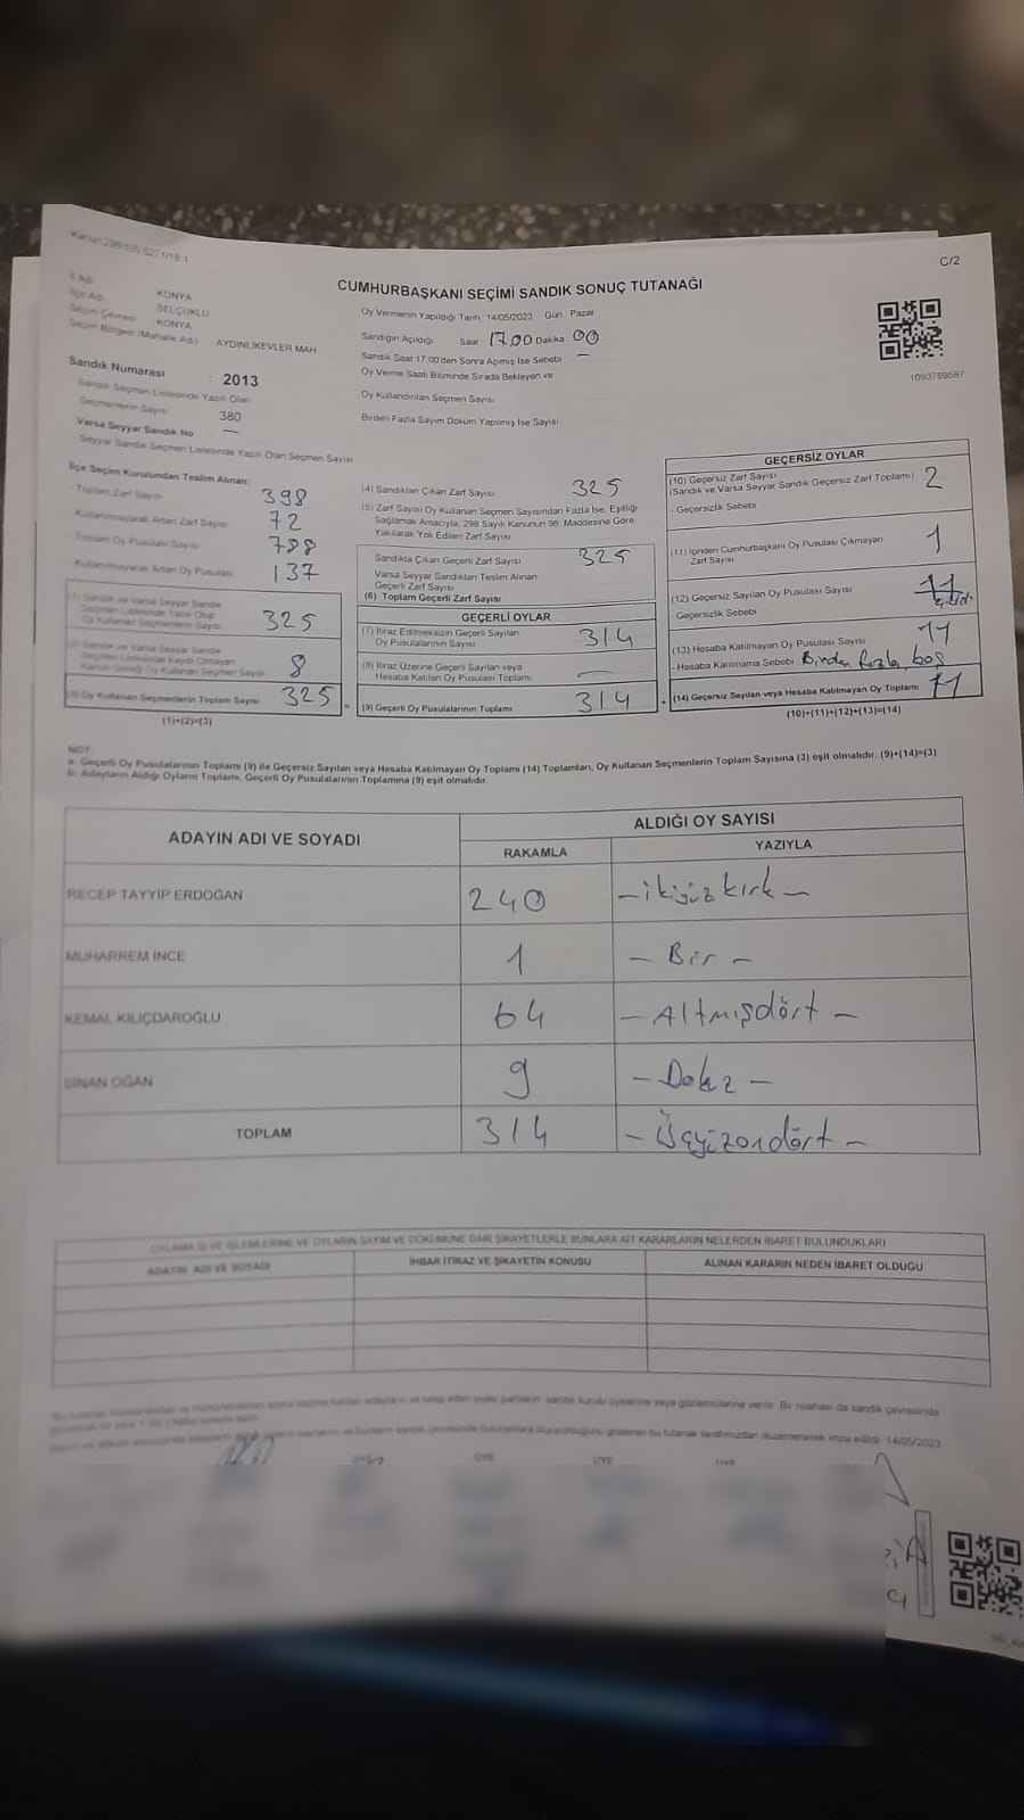 C/2
CUMHURBAŞKANI SEÇİMİ SANDIK SONUÇ TUTANAĞI
İl Adı KONYA
İlçe Adı SELÇUKLU
Seçim Çevresi KONYA
Seçim Bölgesi (Mahalle Adı) AYDINLIKEVLER MAH
Sandık Numarası : 2013
Sandık Seçmen Listesinde Yazılı Olan
Seçmenlerin Sayısı 380
Varsa Seyyar Sandık No —
Seyyar Sandık Seçmen Listesinde Yazılı Olan Seçmen Sayısı
Oy Vermenin Yapıldığı Tarih: 14/05/2023 Gün: Pazar
Sandığın Açıldığı Saat: 17.00 Dakika 00
Sandık Saat 17.00'den Sonra Açılmış İse Sebebi —
Oy Verme Saati Bitiminde Sırada Bekleyen ve
Oy Kullandırılan Seçmen Sayısı
Birden Fazla Sayım Döküm Yapılmış İse Sayısı
1093769587
İlçe Seçim Kurulundan Teslim Alınan:
Toplam Zarf Sayısı 398
Kullanılmayarak Artan Zarf Sayısı 72
Toplam Oy Pusulası Sayısı
Kullanılmayarak Artan Oy Pusulası 137
(1) Sandık ve Varsa Seyyar Sandık
Seçmen Listesinde Yazılı Olup
Oy Kullanan Seçmenlerin Sayısı 325
8
(3) Oy Kullanan Seçmenlerin Toplam Sayısı 325
(1)+(2)=(3)
(4) Sandıktan Çıkan Zarf Sayısı 325
(5) Zarf Sayısı Oy Kullanan Seçmen Sayısından Fazla İse, Eşitliği
Sağlamak Amacıyla, 298 Sayılı Kanunun 98. Maddesine Göre
Yakılarak Yok Edilen Zarf Sayısı
Sandıkta Çıkan Geçerli Zarf Sayısı 325
Varsa Seyyar Sandıktan Teslim Alınan
Geçerli Zarf Sayısı
(6) Toplam Geçerli Zarf Sayısı
GEÇERLİ OYLAR
(7) İtiraz Edilmeksizin Geçerli Sayılan
Oy Pusulalarının Sayısı 314
(8) İtiraz Üzerine Geçerli Sayılan veya
Hesaba Katılan Oy Pusulası Toplamı —
(9) Geçerli Oy Pusulalarının Toplamı 314
GEÇERSİZ OYLAR
(10) Geçersiz Zarf Sayısı
(Sandık ve Varsa Seyyar Sandık Geçersiz Zarf Toplamı) 2
- Geçersizlik Sebebi
(11) İçinden Cumhurbaşkanı Oy Pusulası Çıkmayan
Zarf Sayısı 1
(12) Geçersiz Sayılan Oy Pusulası Sayısı 11
Geçersizlik Sebebi
(13) Hesaba Katılmayan Oy Pusulası Sayısı 11
- Hesaba Katılmama Sebebi Birden fazla, boş
(14) Geçersiz Sayılan veya Hesaba Katılmayan Oy Toplamı 11
(10)+(11)+(12)+(13)=(14)
NOT
a- Geçerli Oy Pusulalarının Toplamı (9) ile Geçersiz Sayılan veya Hesaba Katılmayan Oy Toplamı (14) Toplamları, Oy Kullanan Seçmenlerin Toplam Sayısına (3) eşit olmalıdır. (9)+(14)=(3)
b- Adayların Aldığı Oyların Toplamı, Geçerli Oy Pusulalarının Toplamına (9) eşit olmalıdır.
ADAYIN ADI VE SOYADI
ALDIĞI OY SAYISI
RAKAMLA YAZIYLA
RECEP TAYYİP ERDOĞAN 240 – ikiyüzkırk –
MUHARREM İNCE 1 – Bir –
KEMAL KILIÇDAROĞLU 64 – Altmışdört –
SİNAN OĞAN 9 – Dokuz –
TOPLAM 314 – Üçyüzondört –
OYLAMA İŞ VE İŞLEMLERİNE VE OYLARIN SAYIM VE DÖKÜMÜNE DAİR ŞİKAYETLERLE BUNLARA AİT KARARLARIN NELERDEN İBARET BULUNDUKLARI
ADAYIN ADI VE SOYADI İHBAR İTİRAZ VE ŞİKAYETİN KONUSU ALINAN KARARIN NEDEN İBARET OLDUĞU